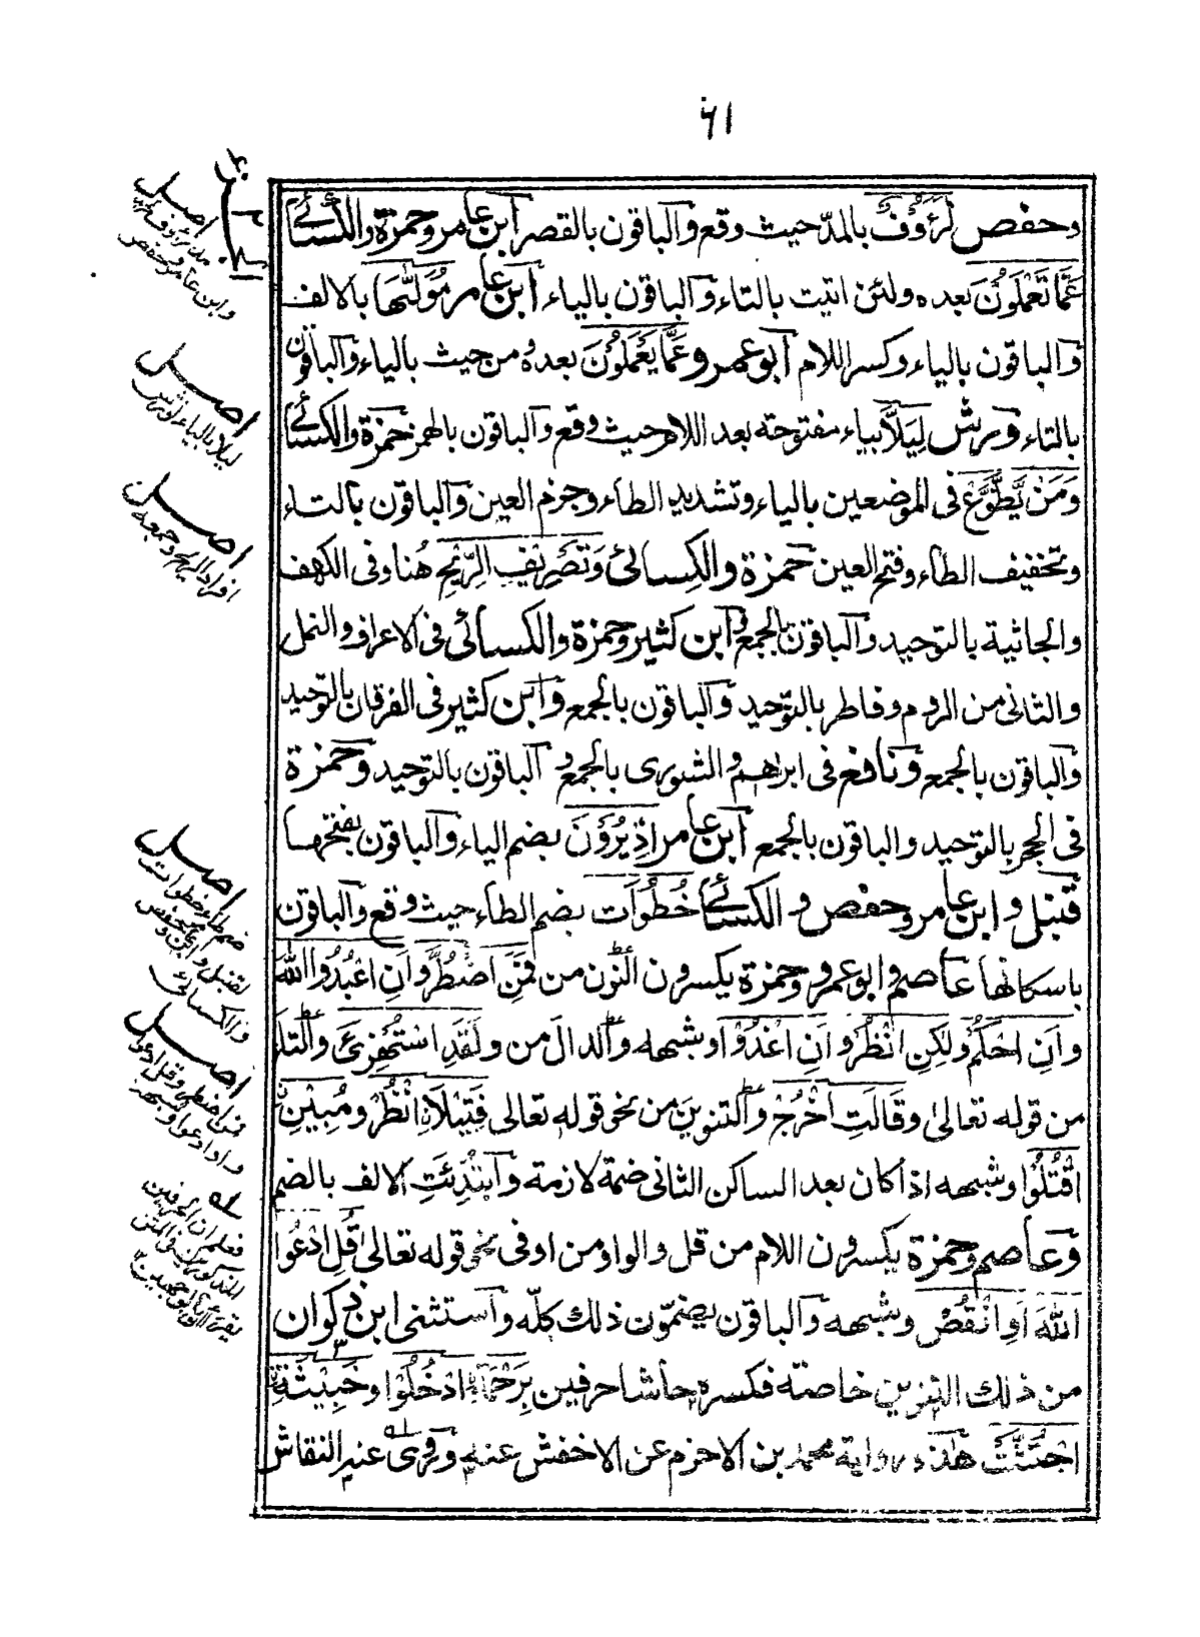 ٦١
وحفص لَرَؤُوفٌ بالمدّ حيث وقع والباقون بالقصر ابن عامر وحمزة والكسائي
عَمَّا تَعْمَلُونَ بعده ولئن اتيت بالتاء والباقون بالياء ابن عامر مُوَلَّٰىهَا بالالف
والباقون بالياء وكسر اللام ابو عمرو عَمَّا يَعْمَلُوْنَ بعده ومن حيث بالياء والباقون
بالتاء ورش لِيَلَّا بياء مفتوحته بعد اللام حيث وقع والباقون بالهمز حمزة والكسائي
وَمَنْ يَطَّوَّعْ فى الموضعين بالياء وتشديد الطاء وجزم العين والباقون بالتاء
وتخفيف الطاء وفتح العين حمزة والكسائى وَتَصْرِيْفِ الرِّيْحِ هُنا وفى الكهف
والجاثية بالتوحيد والباقون بالجمع وابن كثير وحمزة والكسائى فى الاعراف والنمل
والثانى من الروم وفاطر بالتوحيد والباقون بالجمع وابن كثير فى الفرقان بالتوحيد
والباقون بالجمع ونافع فى ابرهيم والشورى بالجمع و الباقون بالتوحيد وحمزة
فى الحجر بالتوحيد والباقون بالجمع ابن عامر اِذْ يُرَوْنَ بضم الياء والباقون بفتحها
قنبل و ابن عامر وحفص و الكسائي خُطُوَات بضم الطاء حيث وقع والباقون
باسكانها عاصم و ابو عمرو وحمزة يكسرون النون من فَمَنِ اضْطُرَّ وَاَنِ اعْبُدُوا اللهَ
وَاَنِ احْكُمْ وَلٰكِنِ انْظُرْ وَاَنِ اغْدُوْا وشبهه والدال من وَلَقَدِ اسْتُهْزِئَ والتاء
من قوله تعالىٰ وَقَالَتِ اخْرُجْ والتنوين من نحو قوله تعالى فَتِيْلَاۨ انْظُرْ ومُبِيْنِۨ
اقْتُلُوْا وشبهه اذا كان بعد الساكن الثانى ضمة لازمة وابْتُدِئَتِ الالف بالضم
وعاصم وحمزة يكسرون اللام من قل والواو من او فى نحو قوله تعالى قُلِ ادْعُوا
اللهَ اَوِ انْقُصْ وشبهه والباقون يضمّون ذلك كلّه واستثنى ابن ذكوان
من ذلك التنوين خاصته فكسره حاشا حرفين بِرَحْمَةٍۨ ادْخُلُوْا وخَبِيْثَةِۨ
اجْتُثَّتْ هٰذه رواية محمد بن الاخرم عن الاخفش عنه وقرئ عنه النقاش
اصل
مد رءوف
وابن عامر وحفص
اصل
ليلا بالياء لورش
اصل
افراد الريح وجمعه
اصل
ضم طاء خطوات
لقنبل وابن عامر وحفص
والكسائى
اصل